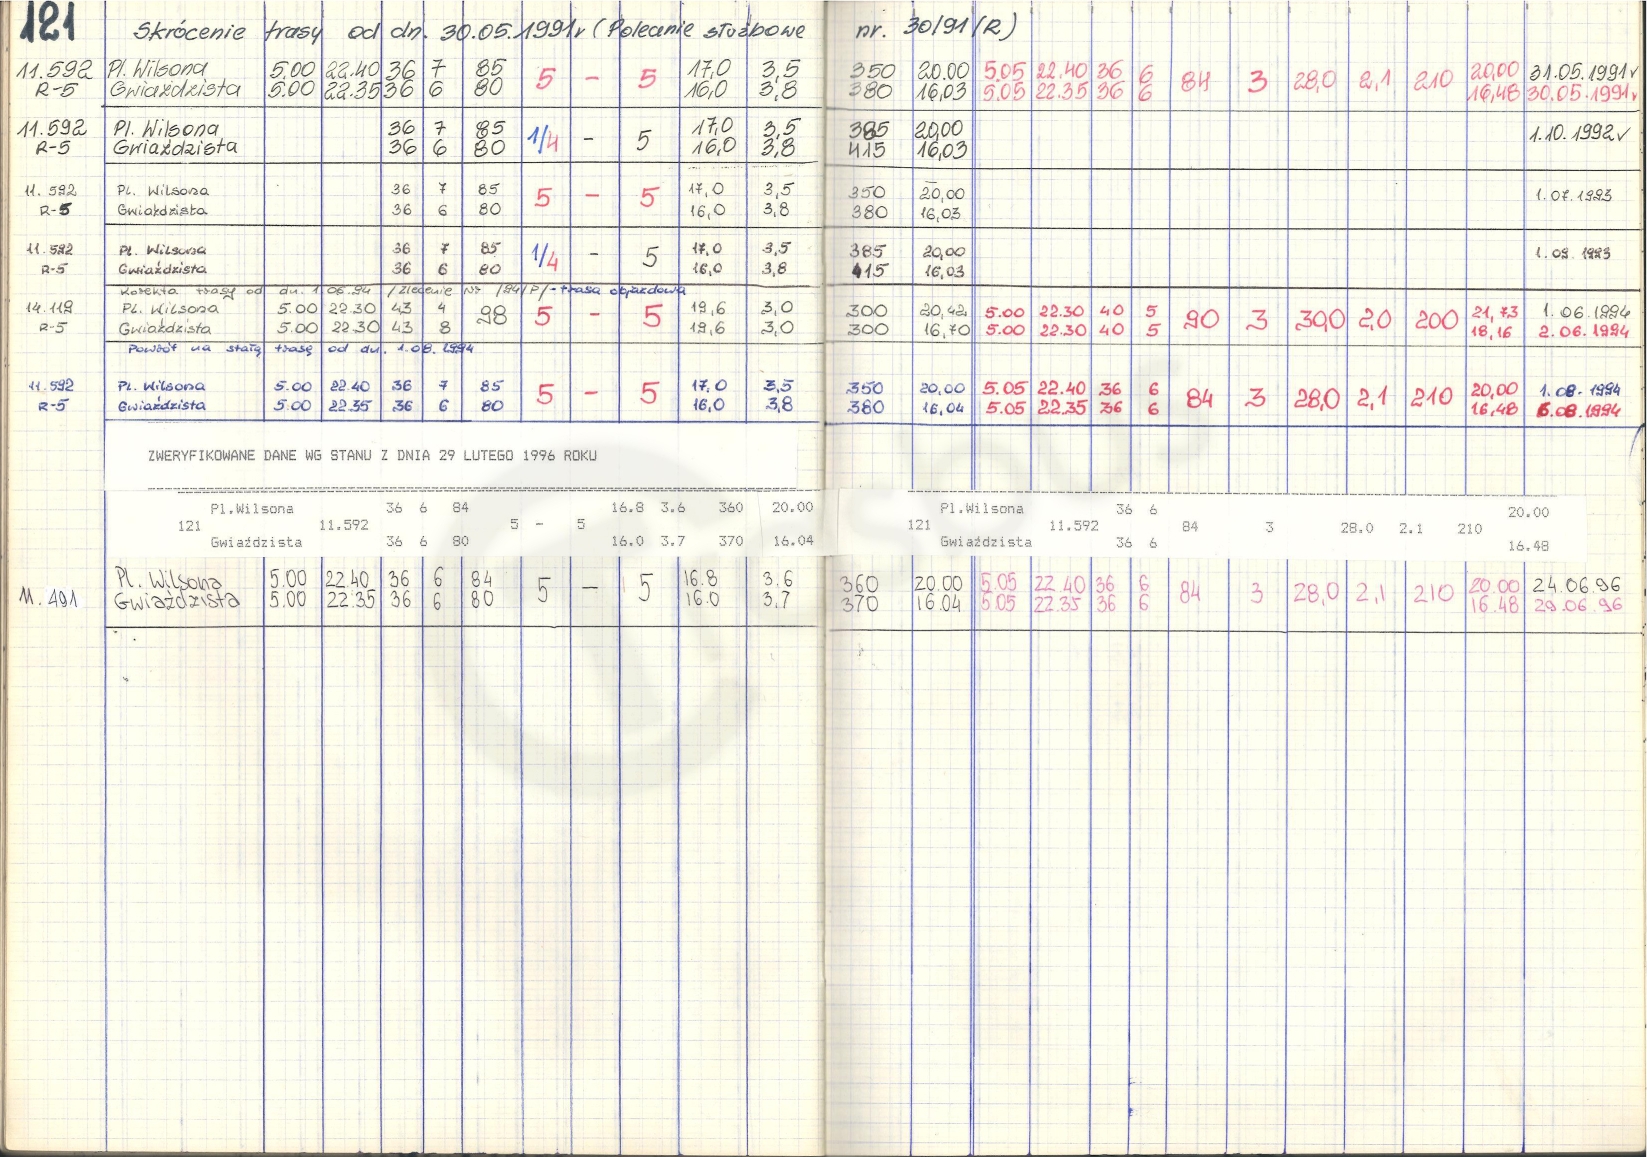 121 Skrócenie trasy od dn. 30.05.1991r (Polecenie służbowe nr. 30/91 (R)
11.592 Pl. Wilsona 5.00 22.40 36 7 85 5 - 5 17,0 3,5 350 20.00 5.05 22.40 36 6 84 3 28,0 2,1 210 20,00 31.05.1991r
R-5 Gwiaździsta 5.00 22.35 36 6 80 16,0 3,8 380 16,03 5.05 22.35 36 6 16,48 30.05.1991r
11.592 Pl. Wilsona 36 7 85 1/4 - 5 17,0 3,5 385 20,00 1.10.1992r
R-5 Gwiaździsta 36 6 80 16,0 3,8 415 16,03
11.592 Pl. Wilsona 36 7 85 5 - 5 17,0 3,5 350 20,00 1.07.1993
R-5 Gwiaździsta 36 6 80 16,0 3,8 380 16,03
11.592 Pl. Wilsona 36 7 85 1/4 - 5 17,0 3,5 385 20,00 1.09.1993
R-5 Gwiaździsta 36 6 80 16,0 3,8 415 16,03
Korekta trasy od dn. 1.06.94 /Zlecenie Nr /94/P/ - trasa objazdowa
14.119 Pl. Wilsona 5.00 22.30 43 4 98 5 - 5 19,6 3,0 300 20,42 5.00 22.30 40 5 90 3 30,0 2,0 200 21,73 1.06.1994
R-5 Gwiaździsta 5.00 22.30 43 8 19,6 3,0 300 16,70 5.00 22.30 40 5 18,16 2.06.1994
Powrót na stałą trasę od dn. 1.08.1994
11.592 Pl. Wilsona 5.00 22.40 36 7 85 5 - 5 17,0 3,5 350 20,00 5.05 22.40 36 6 84 3 28,0 2,1 210 20,00 1.08.1994
R-5 Gwiaździsta 5.00 22.35 36 6 80 16,0 3,8 380 16,04 5.05 22.35 36 6 16,48 6.08.1994
ZWERYFIKOWANE DANE WG STANU Z DNIA 29 LUTEGO 1996 ROKU
Pl.Wilsona 36 6 84 16.8 3.6 360 20.00 Pl.Wilsona 36 6 20.00
121 11.592 5 - 5 121 11.592 84 3 28.0 2.1 210
Gwiaździsta 36 6 80 16.0 3.7 370 16.04 Gwiaździsta 36 6 16.48
Pl. Wilsona 5.00 22.40 36 6 84 5 - 5 16.8 3.6 360 20.00 5.05 22.40 36 6 84 3 28,0 2,1 210 20.00 24.06.96
11.491 Gwiaździsta 5.00 22.35 36 6 80 16.0 3.7 370 16.04 5.05 22.35 36 6 16.48 29.06.96